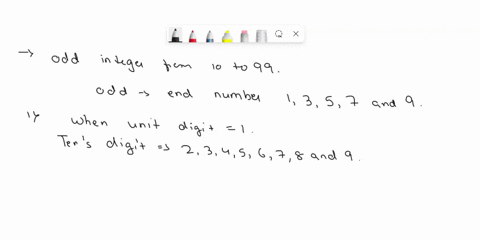 → odd integer from 10 to 99.
odd → end number 1, 3, 5, 7 and 9.
1) when unit digit = 1.
Ten's digit => 2, 3, 4, 5, 6, 7, 8 and 9.